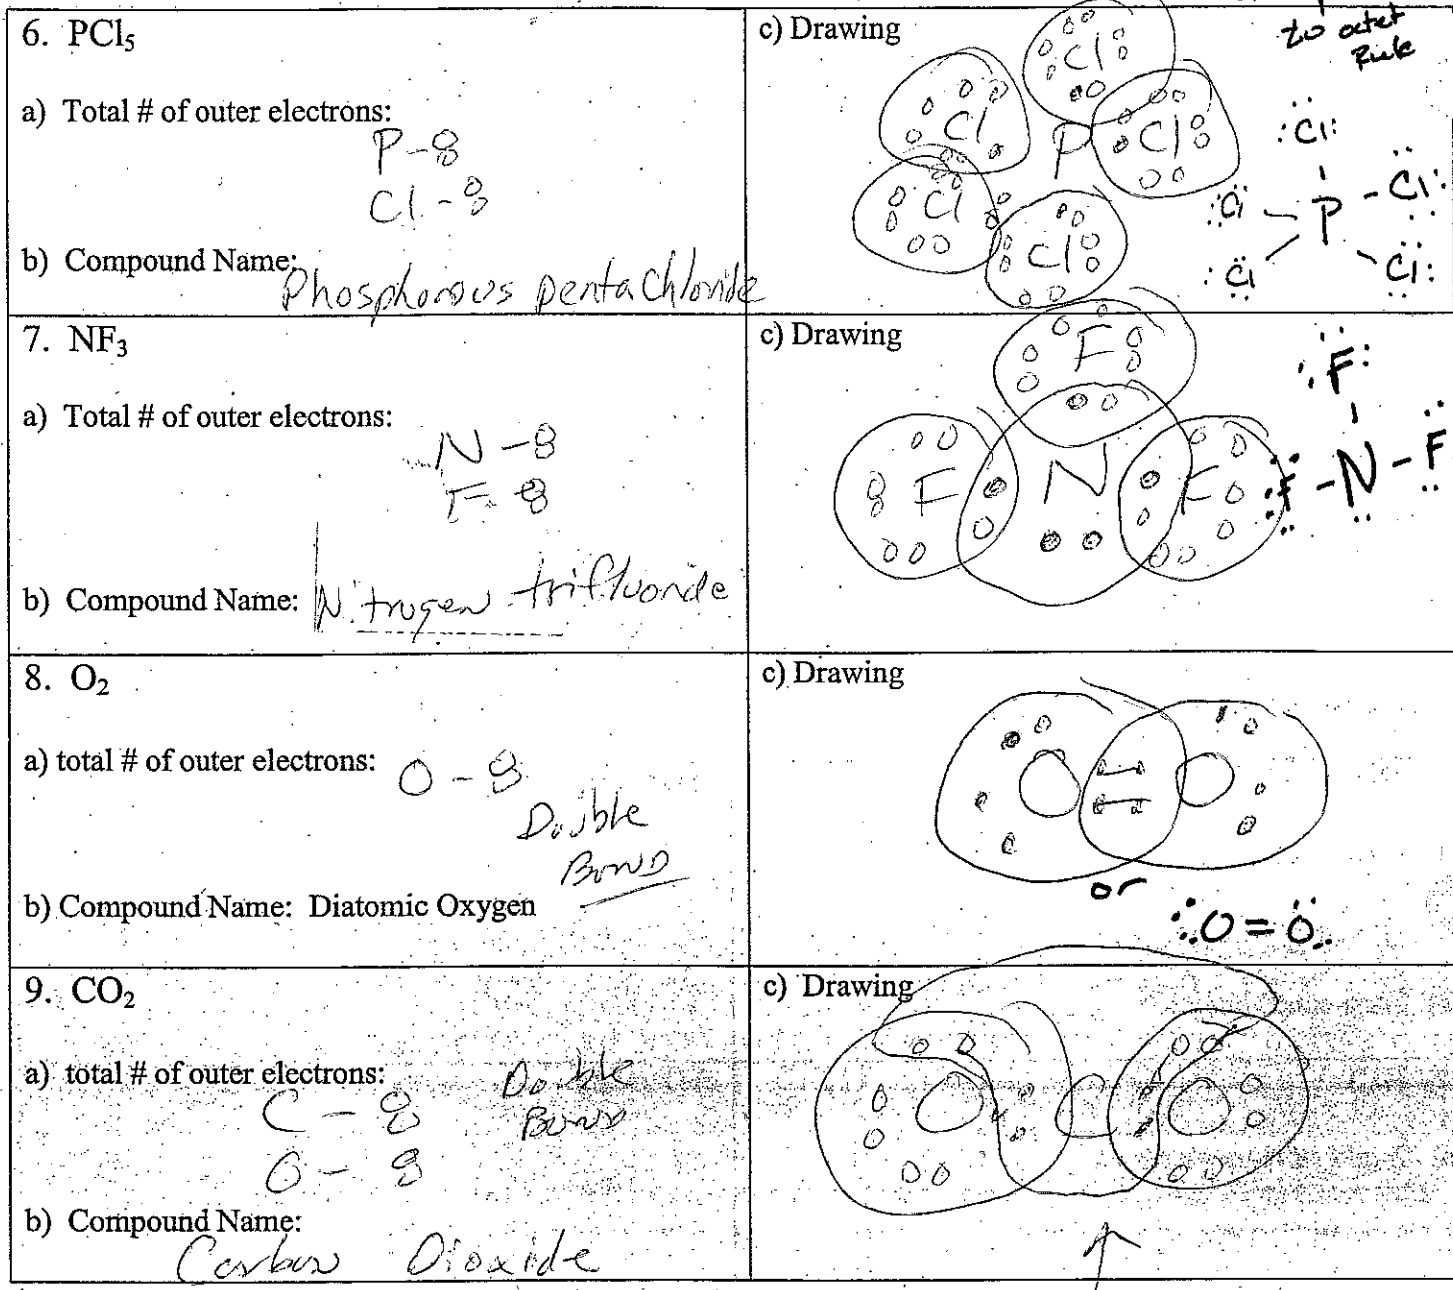 6. PCl₅
a) Total # of outer electrons:
P-8
Cl-8
b) Compound Name:
Phosphorous pentaChloride
c) Drawing
to octet
Rule
Cl
Cl
Cl
Cl
Cl
P
:Cl:
:Cl - P - Cl:
:Cl Cl:
7. NF₃
a) Total # of outer electrons:
N-8
F-8
b) Compound Name: Nitrogen trifluoride
c) Drawing
F
F N F
:F:
:F-N-F
8. O₂
a) total # of outer electrons: O-8
Double
Bond
b) Compound Name: Diatomic Oxygen
c) Drawing
O O
or
:O=O
9. CO₂
a) total # of outer electrons:
C-8
O-8
Double
Bond
b) Compound Name:
Carbon Dioxide
c) Drawing
O C O